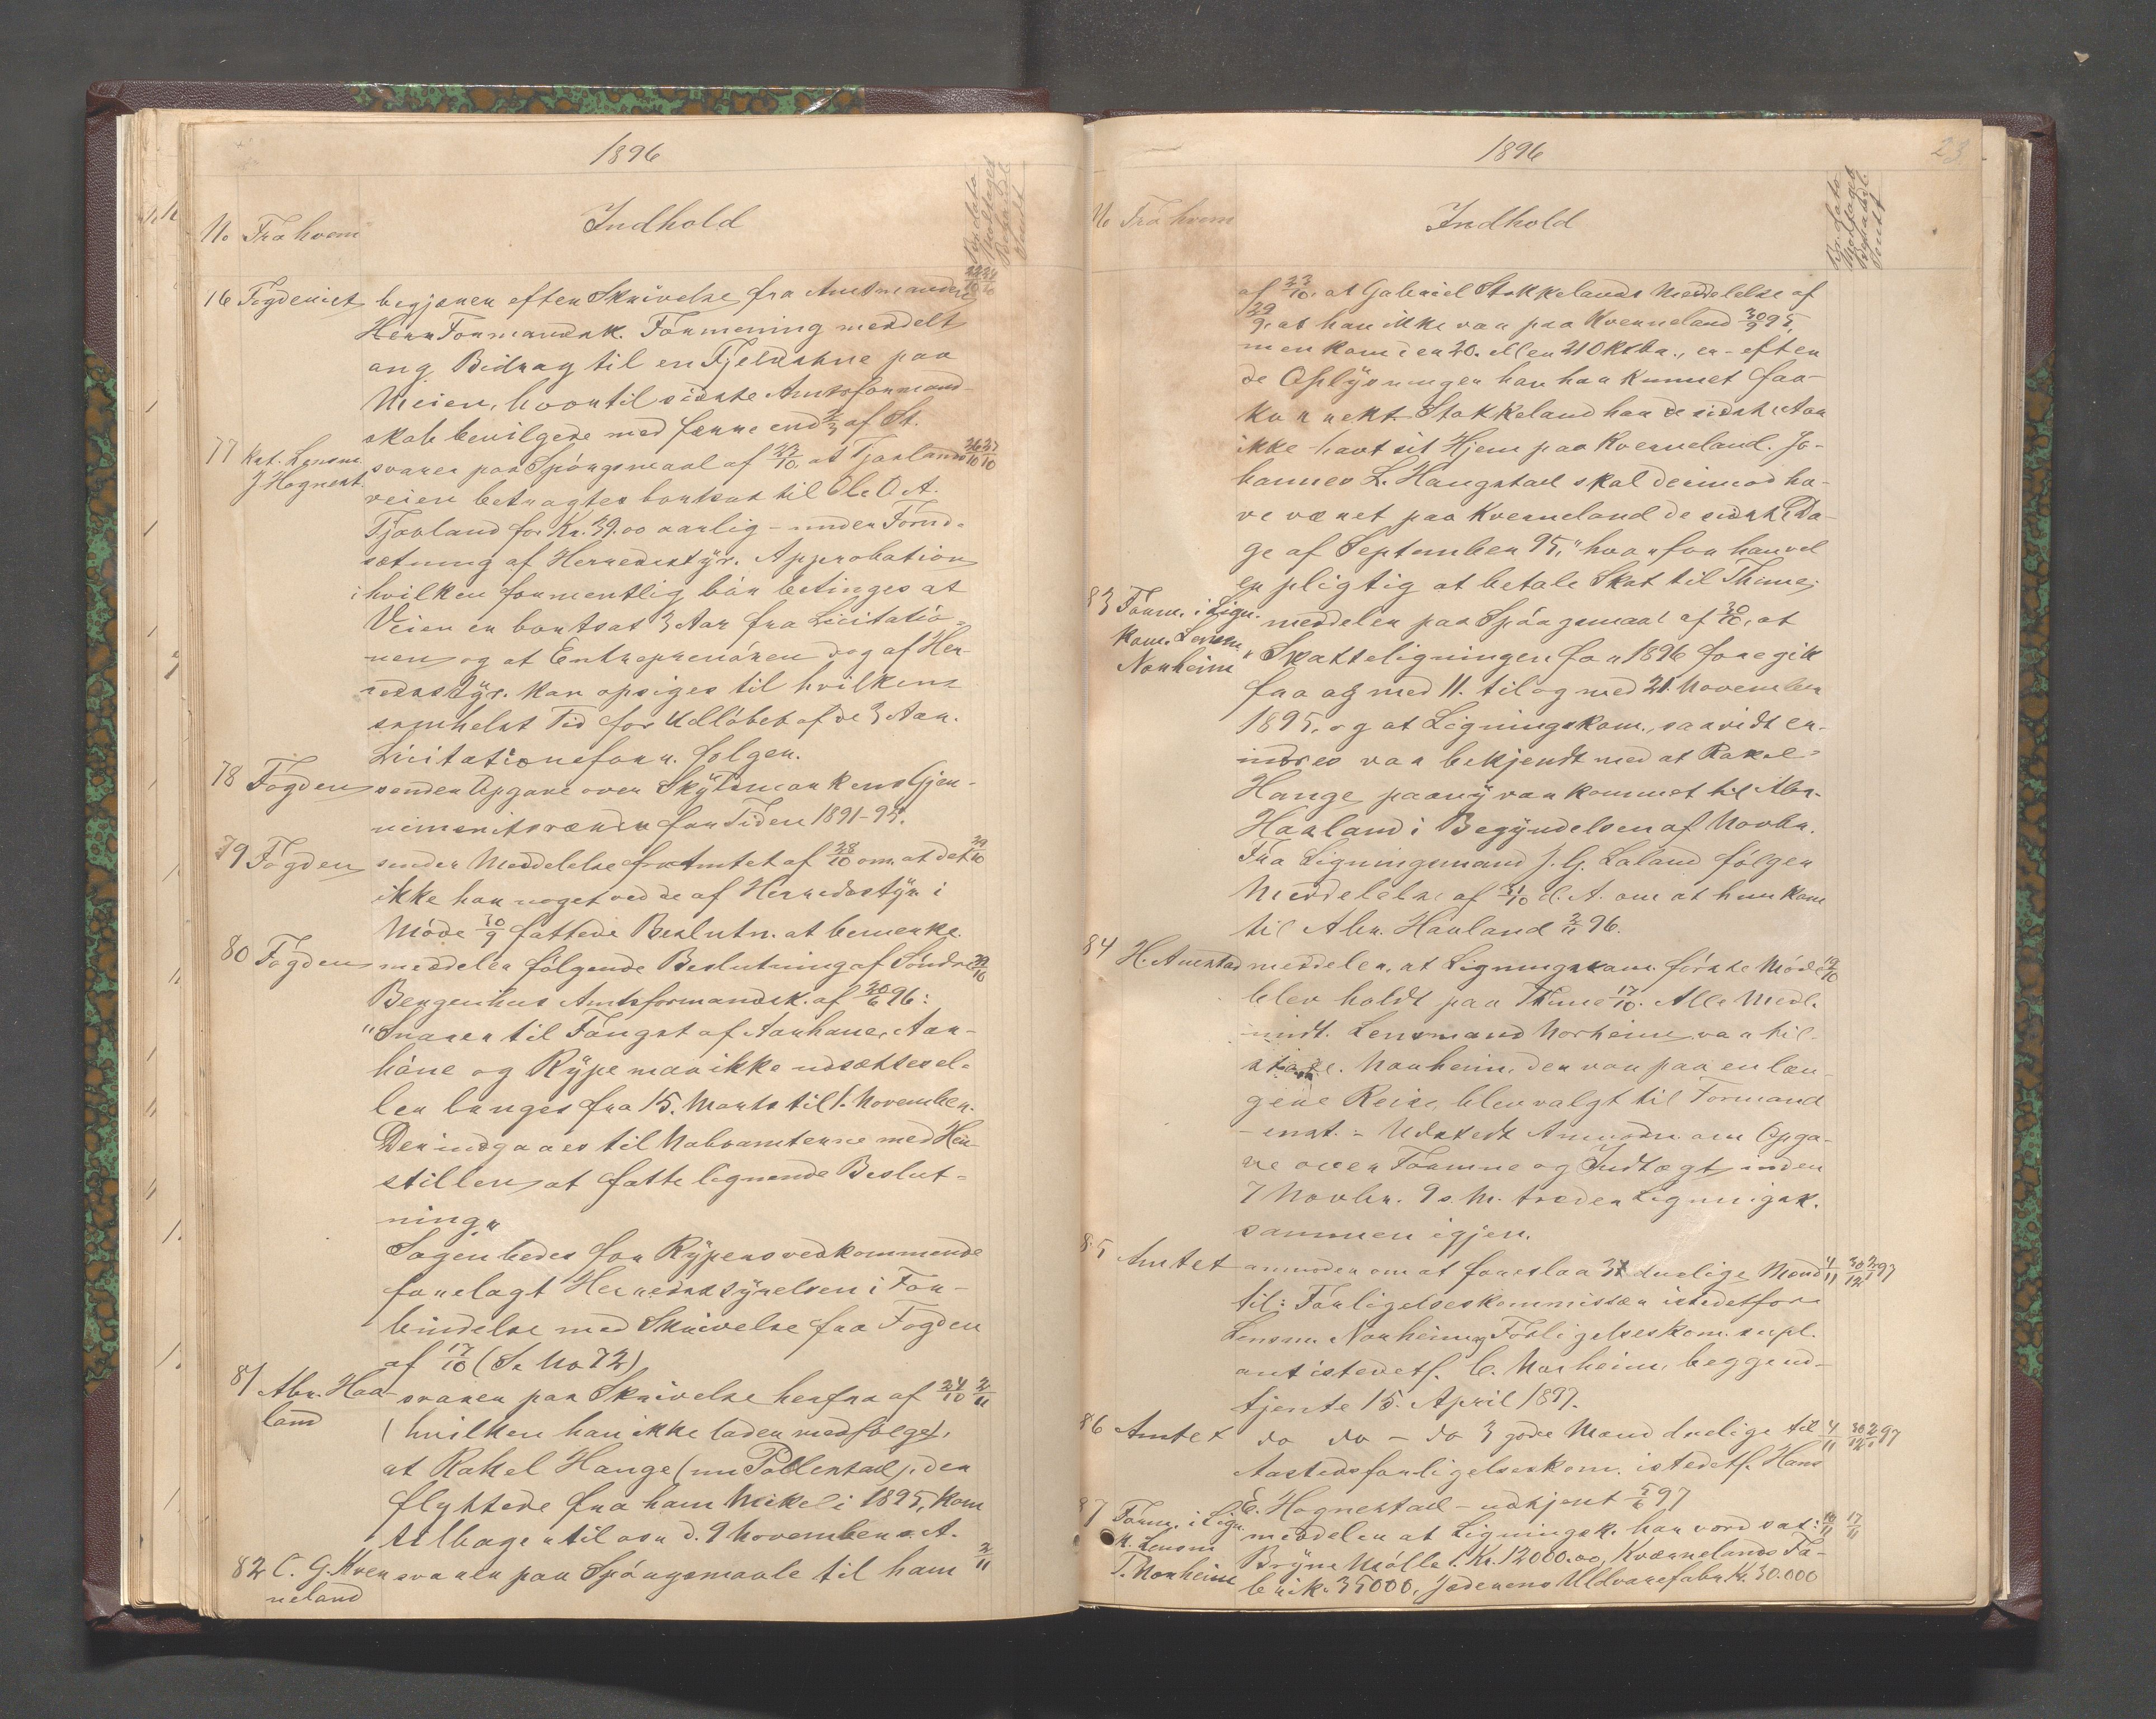 1896
No Fra hvem Indhold
76 Fogderiet begjærer efter Skrivelse fra Amtmanden
Herr Formandsk. Formening meddelt
ang Bidrag til en Fjeldstue paa
Meien, hvortil sidste Amtsformand-
skab bevilgede med færre end 2/3 af St.
77 Kst. Lensm. svarer paa Spørgsmaal af 22/10 at Tjaalands 26/10 27/10
J. Hognest. veien betragtes bortsat til Ole O. A.
Tjaaland for Kr. 39.00 aarlig - under Forud-
sætning af Herredsstyr. Approbation
i hvilken formentlig bør betinges at
Veien er bortsat 3 Aar fra Licitatio-
nen og at Entreprenøren dog af Her-
redsstyr. kan opsiges til hvilken
somhelst Tid før Udløbet af de 3 Aar.
Licitationsforr. følger.
78 Fogden sender Opgave over Skyldmarkens Gjen-
nemsnitsværdi for Tiden 1891-95.
79 Fogden sender Meddelelse fra Amtet af 28/10 om at det 29/10
ikke har noget ved de af Herredsstyr. i
Møde 30/9 fattede Beslutn. at bemerke.
80 Fogden meddeler følgende Beslutning af Søndre 29/10
Bergenhus Amtsformandsk. af 20/6 96:
"Snarer til Fangst af Aarhane, Aar-
høne og Rype maa ikke udsættes el-
ler bruges fra 15. Marts til 1. November.
Der indgaaes til Naboamterne med Hen-
stillen at fatte lignende Beslut-
ning"
Sagen bedes for Rypens vedkommende
forelagt Herredsstyrelsen i For-
bindelse med Skrivelse fra Fogden
af 17/10 (Se No 72)
81 Abr. Haa- svarer paa Skrivelse herfra af 24/10 2/11
land (hvilken han ikke lader medfølge),
at Rakel Hauge (nu Pollestad), der
flyttede fra ham Mikeli 1895, kom
tilbage til osn d. 9 November s. A.
82 C. G. Kver svarer paa Spørgsmaale til ham 2/11
neland
1896 23
No Fra hvem Indhold
af 23/10, at Gabriel Stokkelands Meddelelse af
29/9, at han ikke var paa Kverneland 30/9 95,
men kom den 20. eller 21 Oktbr., er - efter
de Oplysninger han har kunnet faa -
korrekt. Stokkeland har de sidste Aar
ikke havt sit Hjem paa Kverneland. Jo-
hannes L. Haugstad skal derimod ha-
ve været paa Kverneland de sidste Da-
ge af September 95, "hvorfor han vel
er pligtig at betale Skat til Thime;
83 Form. i Lign. meddeler paa Spørgsmaal af 30/10, at
kom. Lensm. Skatteligningen for 1896 foregik
Norheim fra og med 11. til og med 21. November
1895, og at Ligningskom., saavidt er-
indres var bekjendt med at Rakel
Hauge paany var kommet til Abr.
Haaland i Begyndelsen af Novbr.
Fra Ligningsmand J. G. Laland følger
Meddelelse af 31/10 d. A. om at hun kom
til Abr. Haaland 2/11 96.
84 H. Auestad meddeler, at Ligningskom. første Møde 19/10
blev holdt paa Thime 17/10. Alle Medl.
undt. Lensmand Norheim var til-
stede. Norheim, der var paa en læn-
gere Reise, blev valgt til Formand
- enst. - Udstedt Anmodn. om Opga-
ve over Formue og Indtægt inden
7 Novbr. 9 s. M. træder Ligningsk.
sammen igjen.
85 Amtet anmoder om at foreslaa 3 duelige Mænd 4/11 30/12 2/1 97
til: Forligelseskommissær istedetfor
Lensm. Norheim og Forligelseskom. supl.
ant istedetf. C. Norheim, begge ud-
tjente 15. April 1897.
86 Amtet do do - do 3 gode Mænd duelige til 4/11 30/12 2/1 97
Aastedsforligelseskom. istedetf. Hans
E. Hognestad - udtjent 5/6 97
87 Form. i Lign. meddeler at Ligningsk. har vord sat: 16/11 17/11
k. Lensm Bryne Mølle: Kr. 12000.00, Kvernelands Fa-
T. Norheim brik 35000, Jæderens Uldvarefabr. Kr. 30.000